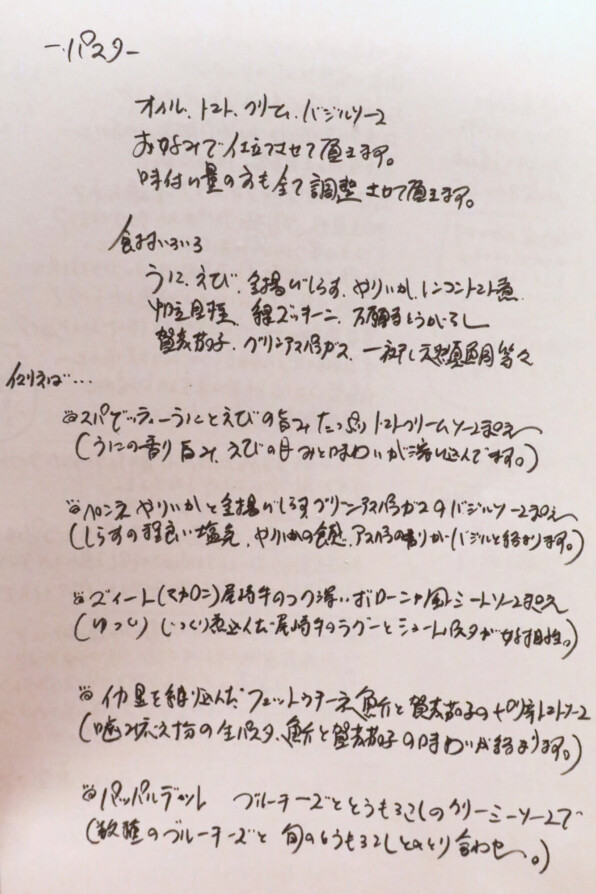 -パスタ-
オイル、トマト、クリーム、バジルソース
お好みで仕立てさせて頂きます。
味付け量の方も全て調整させて頂きます。
食材いろいろ
うに、えび、釜揚げしらす、やりいか、インゲントマト煮
緑ズッキーニ、万願寺とうがらし
賀茂茄子、グリーンアスパラガス、一夜干し 等々
例えば…
スパゲッティーうにとえびの旨みたっぷりトマトクリームソース
(うにの香り旨み、えびの甘みと味わいが溶け込んでます。)
ペンネ やりいかと釜揚げしらす、グリーンアスパラガスのバジルソース
(しらすの程良い塩気、やりいかの食感、アスパラの香りがバジルと絡まります。)
ズィート(マカロニ)尾崎牛のコク深いボローニャ風ミートソース
(ゆっくりじっくり煮込んだ尾崎牛のラグーとショートパスタが好相性。)
を練り込んだフェットゥチーネ と賀茂茄子の トマトソース
(噛み応え十分の生パスタ、 と賀茂茄子の味わいが絡まります。)
パッパルデッレ ブルーチーズととうもろこしのクリーミーソースで
(数種のブルーチーズと旬のとうもろこしとのとり合わせ。)